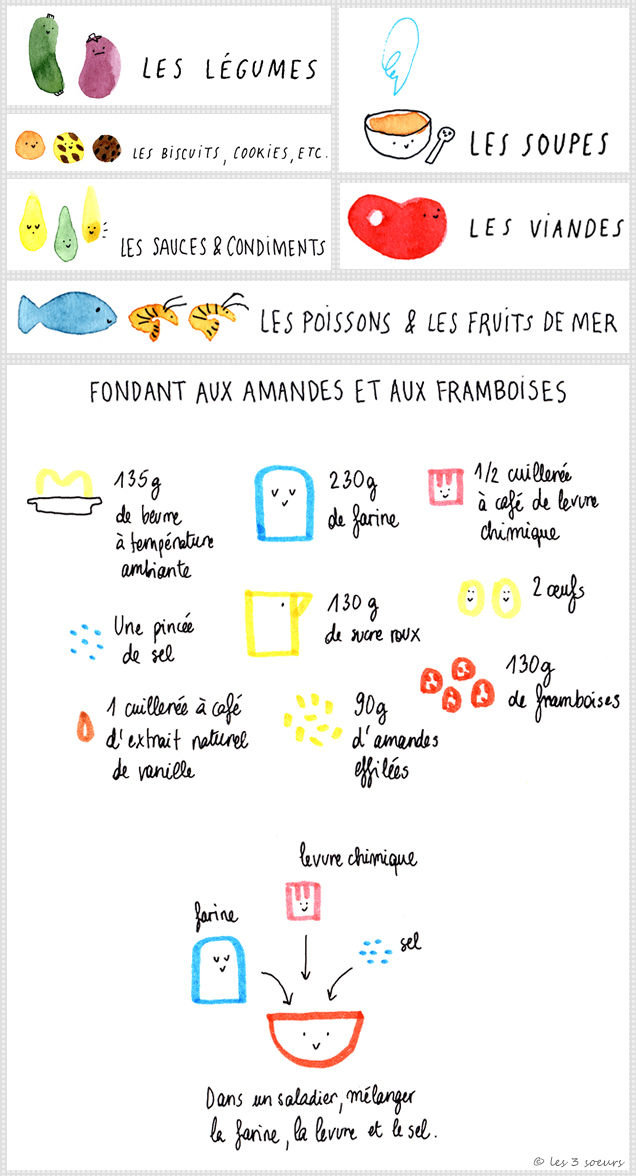 LES LÉGUMES
LES BISCUITS, COOKIES, ETC.
LES SAUCES & CONDIMENTS
LES SOUPES
LES VIANDES
LES POISSONS & LES FRUITS DE MER
FONDANT AUX AMANDES ET AUX FRAMBOISES
135g
de beurre
à température
ambiante
230g
de farine
1/2 cuillerée
à café de levure
chimique
Une pincée
de sel
130 g
de sucre roux
2 œufs
1 cuillerée à café
d'extrait naturel
de vanille
90g
d'amandes
effilées
130g
de framboises
levure chimique
farine
sel
Dans un saladier, mélanger
la farine, la levure et le sel.
© les 3 soeurs